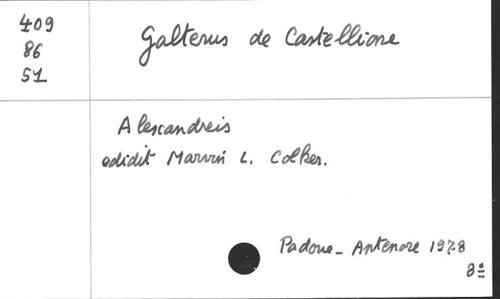 409
86
51
Galterus de Castellione
Alexandreis
edidit Marvin L. Colker.
Padoue - Antenore 1978
8º